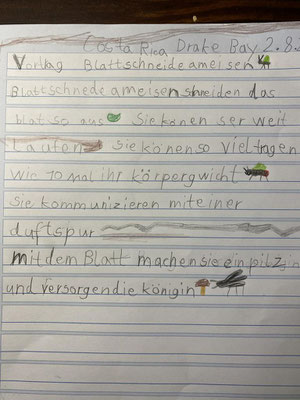 Costa Rica Drake Bay 2.8.
Vortrag Blattschneideameisen
Blattschnedeameisen shneiden das
blat so aus Sie könen ser weit
laufen Sie könen so viel tragen
wie 10 mal ihr körpergwicht
Sie kommunizieren mit einer
duftspur
mit dem Blatt machen sie ein pilz
und versorgen die königin